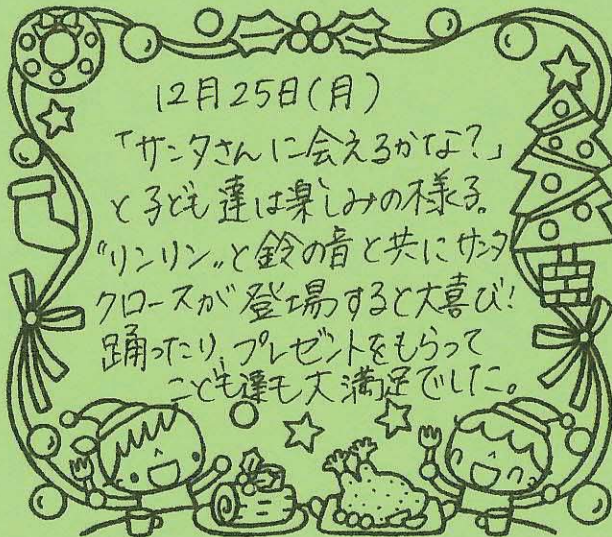 12月25日(月)
「サンタさんに会えるかな?」
と子ども達は楽しみの様子。
"リンリン"と鈴の音と共にサンタ
クロースが登場すると大喜び!
踊ったり、プレゼントをもらって
こども達も大満足でした。